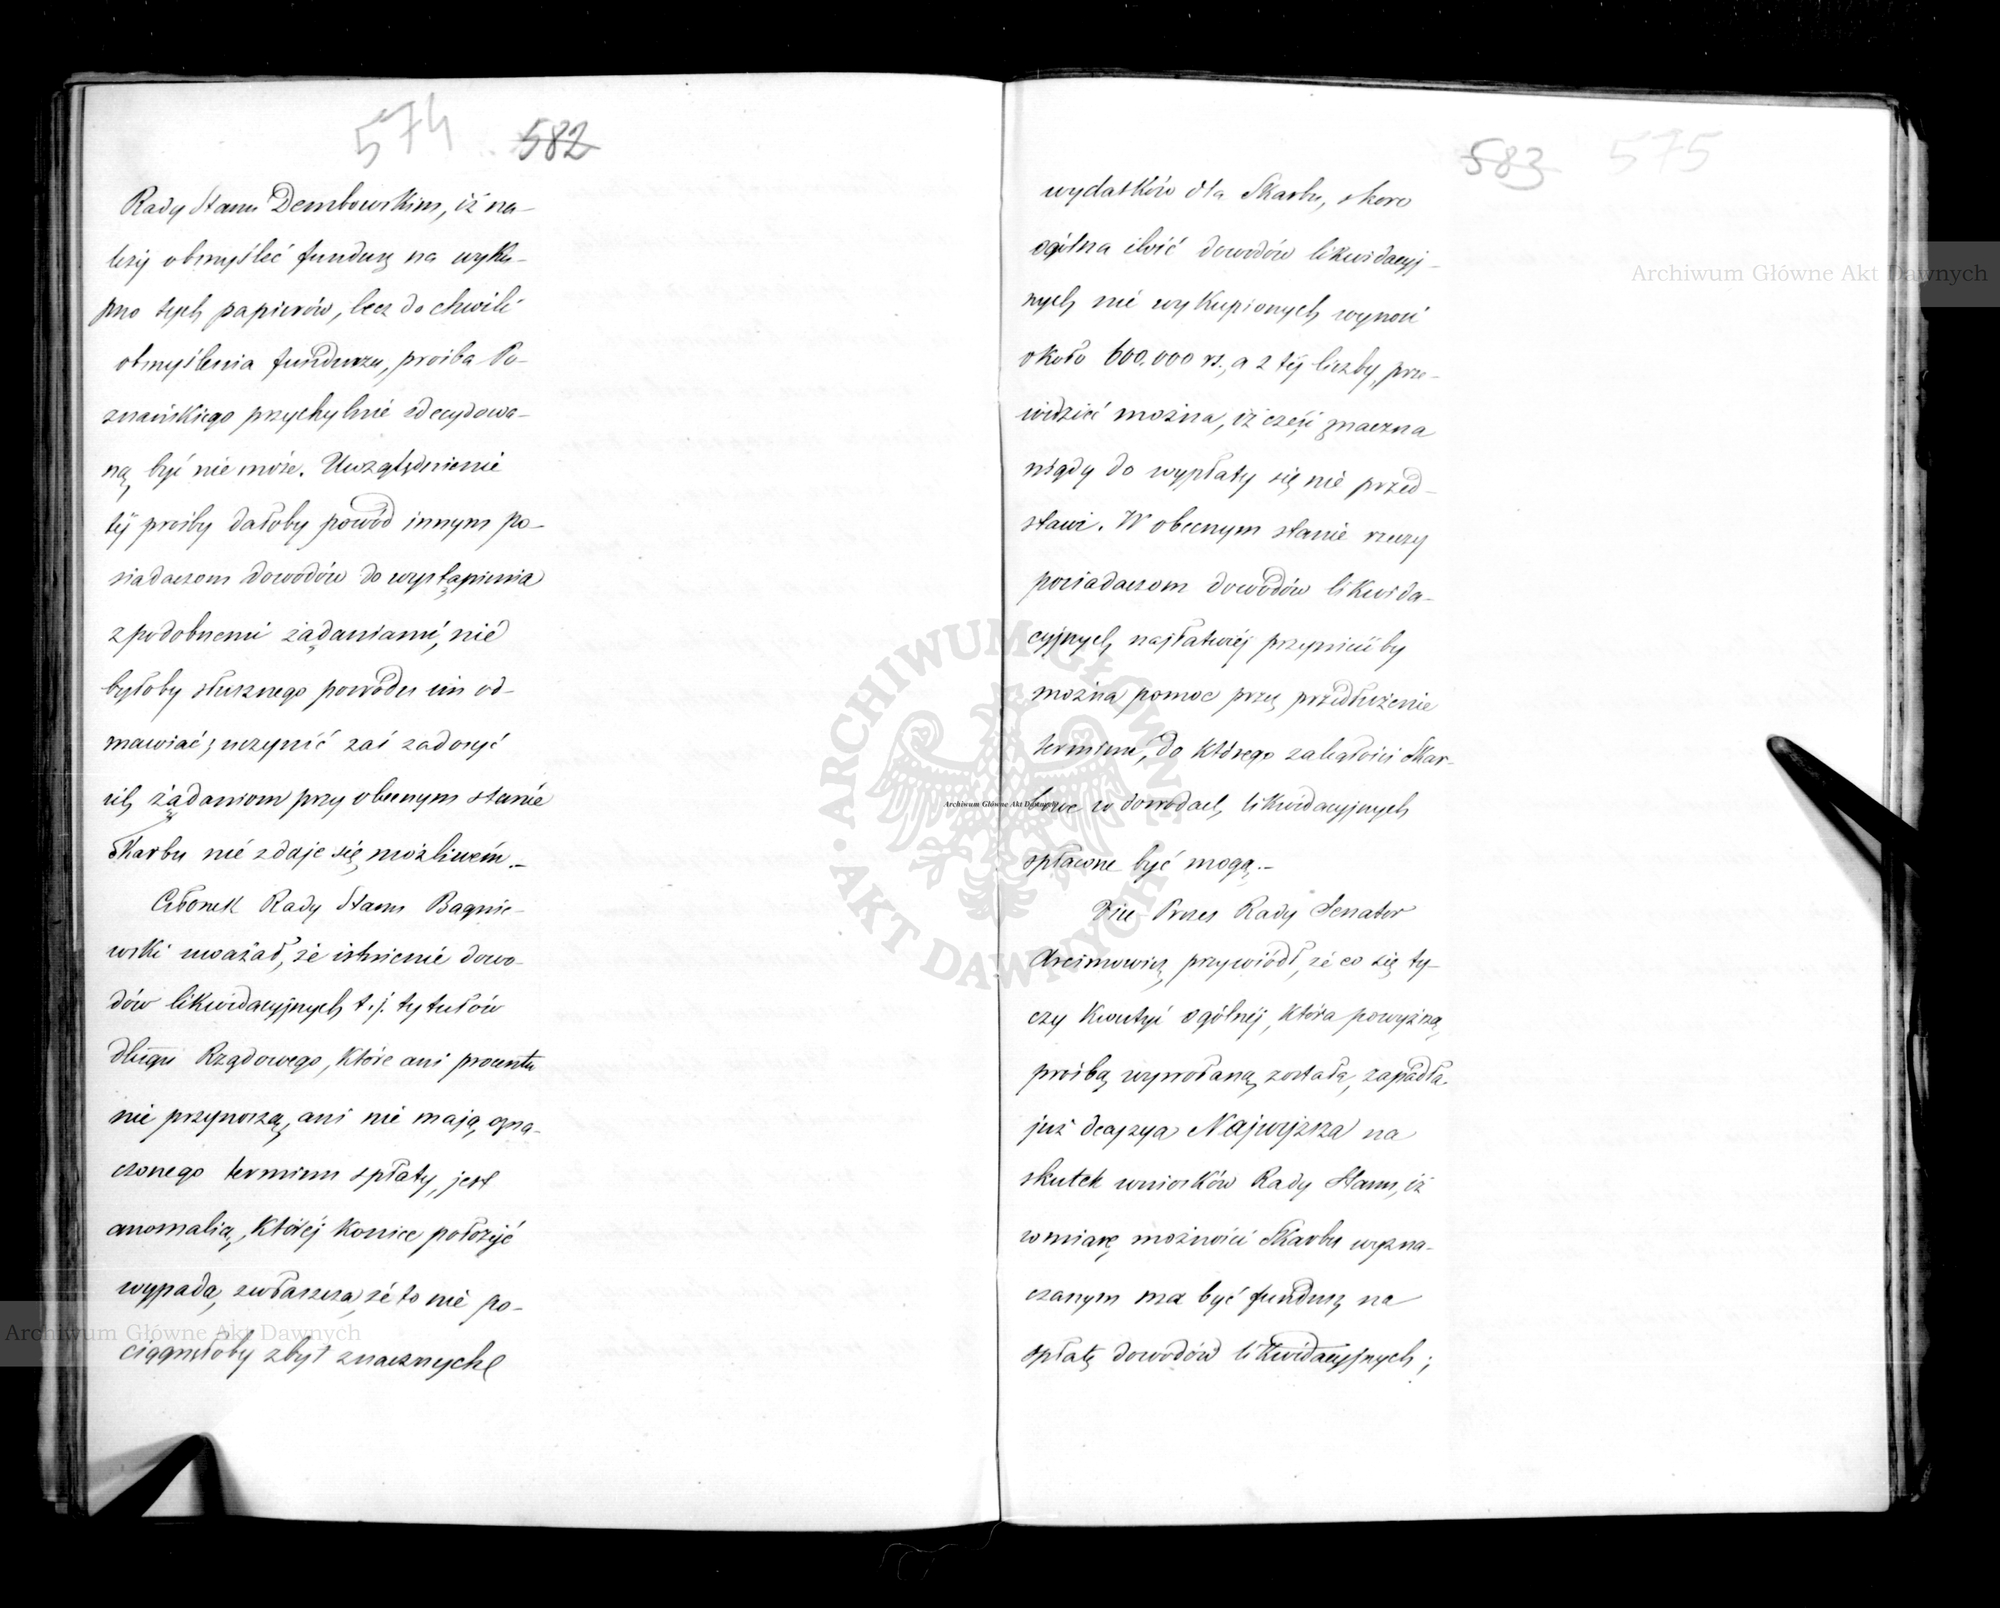 574 582
Rady Stanu Dembowskim, iż na-
leży obmyśleć fundusz na wyku-
pno tych papierów, lecz do chwili
obmyślenia funduszu, prośba Po-
znańskiego przychylnie zdecydowa-
ną być nie może. Uwzględnienie
téj prośby dałoby powód innym po-
siadaczom dowodów do wystąpienia
z podobnemi żądaniami, nie
byłoby słusznego powodu im od-
mawiać; uczynić zaś zadosyć
ich żądaniom przy obecnym stanie
Skarbu nie zdaje się możliwém.-
Członek Rady Stanu Bagnie-
wski uważał, że istnienie dowo-
dów likwidacyjnych t.j. tytułów
długu Rządowego, które ani procentu
nie przynoszą, ani nie mają ozna-
czonego terminu spłaty, jest
anomalią, któréj koniec położyć
wypada, zwłaszcza, że to nie po-
ciągnęłoby zbyt znacznych
583 575
wydatków dla Skarbu, skoro
ogólna ilość dowodów likwidacyj-
nych nie wykupionych wynosi
około 600.000 rs., a z téj liczby, prze-
widzieć można, iż część znaczna
nigdy do wypłaty się nie przed-
stawi. W obecnym stanie rzeczy
posiadaczom dowodów likwida-
cyjnych najłatwiéj przynieść by
można pomoc przez przedłużenie
terminu, do którego zaległości Skar-
bowe w dowodach likwidacyjnych
spłacone być mogą.-
Vice-Prezes Rady Senator
Arcimowicz przywiódł, że co się ty-
czy kwestyi ogólnéj, która powyższą
prośbą wywołaną została, zapadła
już decyzya Najwyższa na
skutek wniosków Rady Stanu, iż
w miarę możności Skarbu wyzna-
czanym ma być fundusz na
spłatę dowodów likwidacyjnych;
Archiwum Główne Akt Dawnych
ARCHIWUM GŁÓWNE
AKT DAWNYCH
Archiwum Główne Akt Dawnych
Archiwum Główne Akt Dawnych